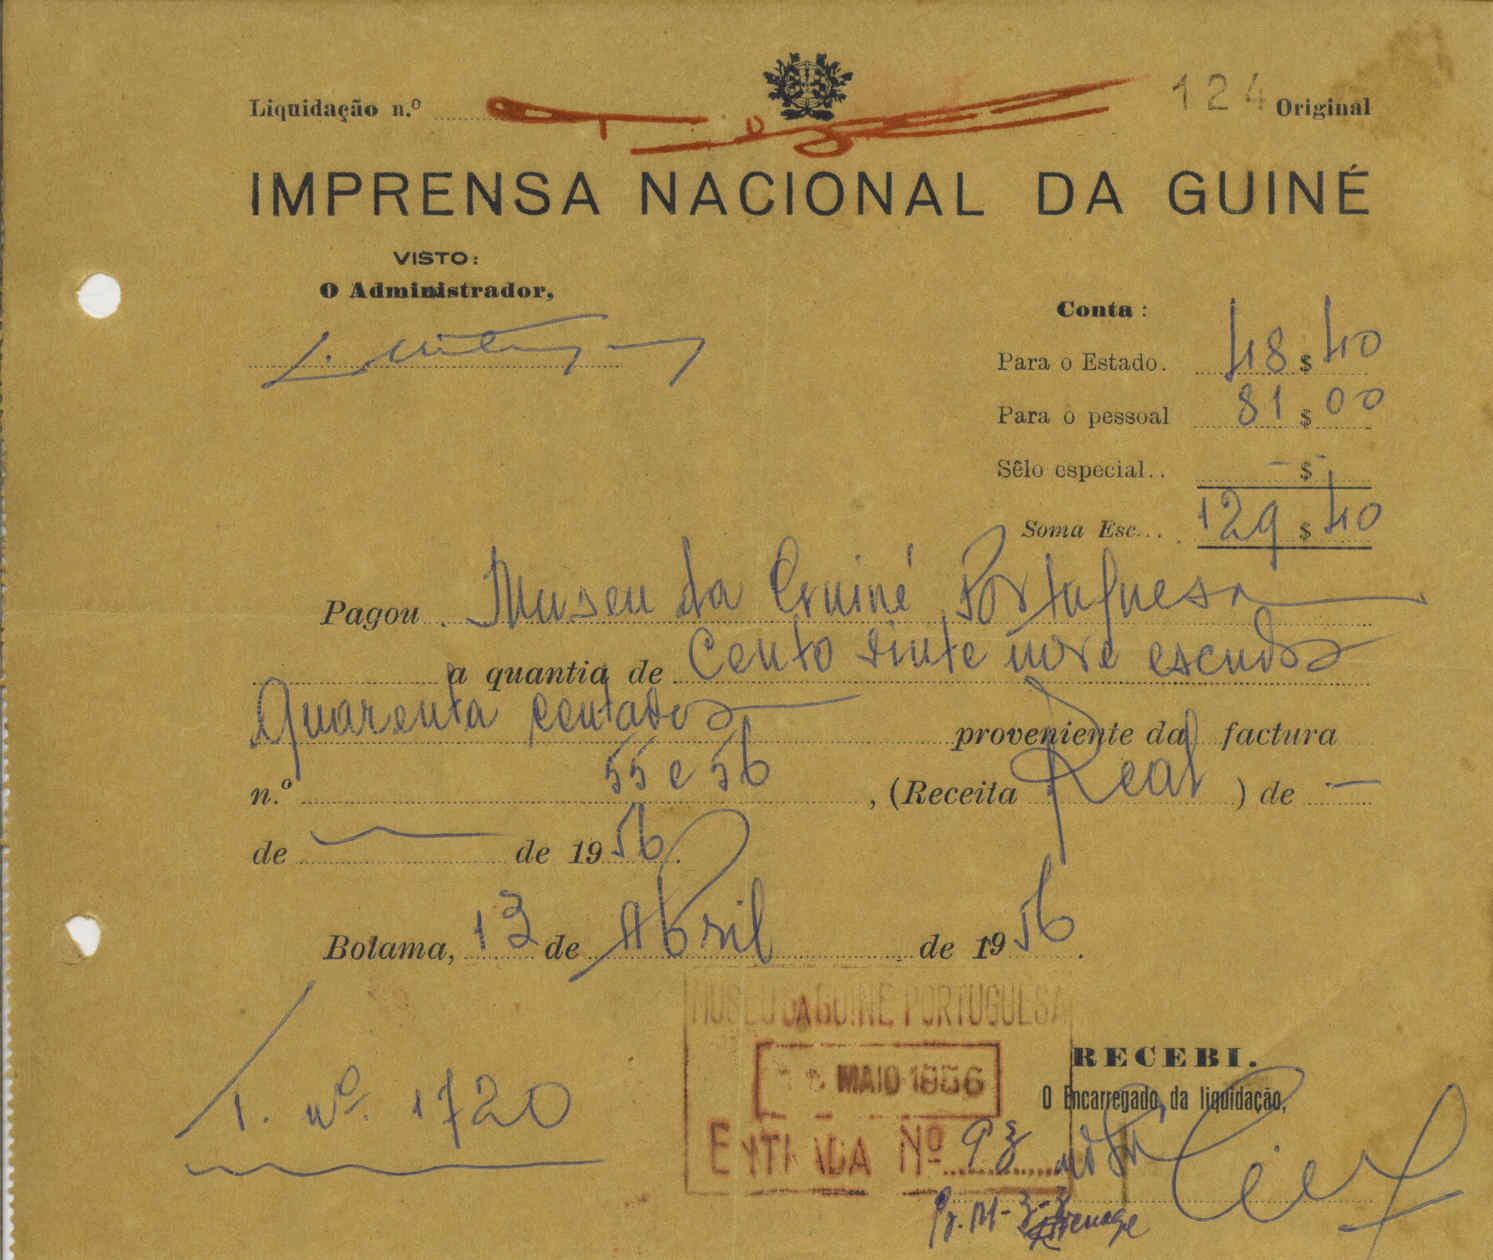 Liquidação n.º 124 Original
IMPRENSA NACIONAL DA GUINÉ
VISTO:
O Administrador,
Conta:
Para o Estado. 48 $ 40
Para o pessoal 81 $ 00
Sêlo especial.. - $ -
Soma Esc... 129 $ 40
Pagou Museu da Guiné Portuguesa
a quantia de Cento vinte nove escudos
Quarenta centavos proveniente da factura
n.º 55 e 56, (Receita Real) de —
de — de 1956.
Bolama, 13 de Abril de 1956.
MUSEU DA GUINÉ PORTUGUESA
MAIO 1956
ENTRADA Nº 93
RECEBI.
O Encarregado da liquidação,
T. nº. 1720